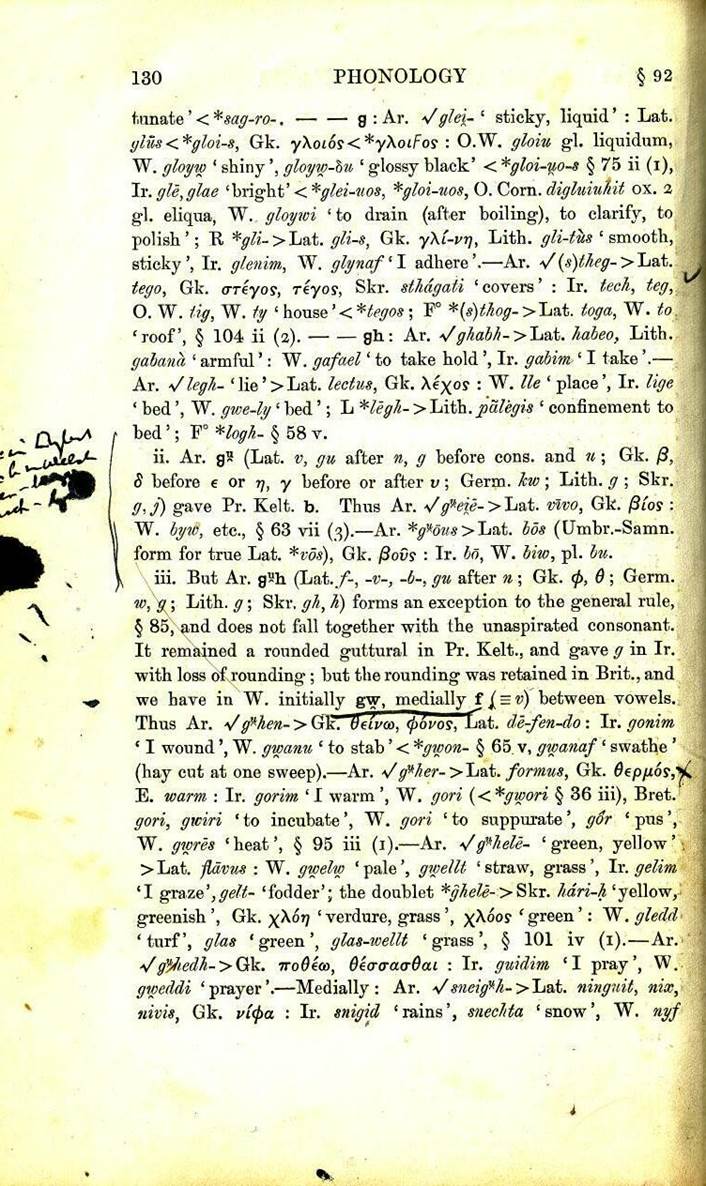 130 PHONOLOGY § 92
tunate’ < *sag-ro-. — — g : Ar. √glei̯- ‘ sticky, liquid’ : Lat.
glūs < *gloi-s, Gk. γλοιός < *γλοιϝος : O.W. gloiu gl. liquidum,
W. gloyw̯ ‘ shiny ’, gloyw̯-δu ‘ glossy black’ < *gloi-u̯o-s § 75 ii (1),
Ir. glē, glae ‘bright’ < *glei-uos, *gloi-uos, O. Corn. digluiuhit ox. 2
gl. eliqua, W. gloywi ‘ to drain (after boiling), to clarify, to
polish ’ ; R *gli- > Lat. gli-s, Gk. γλί-νη, Lith. gli-tùs ‘ smooth,
sticky ’, Ir. glenim, W. glynaf ‘ I adhere ’.—Ar. √(s)theg- > Lat.
tego, Gk. στέγος, τέγος, Skr. sthágati ‘ covers ’ : Ir. tech, teg,
O. W. tig, W. ty ‘ house ’ < *tegos ; F° *(s)thog- > Lat. toga, W. to
‘ roof ’, § 104 ii (2). — — gh : Ar. √ghabh- > Lat. habeo, Lith.
gabanà ‘ armful ’ : W. gafael ‘ to take hold ’, Ir. gabim ‘ I take ’.—
Ar. √legh- ‘ lie ’ > Lat. lectus, Gk. λέχος : W. lle ‘ place ’, Ir. lige
‘ bed ’, W. gwe-ly ‘ bed ’ ; L *lēgh- > Lith. pãlėgis ‘ confinement to
bed ’ ; F° *logh- § 58 v.
ii. Ar. gᵘ̯ (Lat. v, gu after n, g before cons. and u ; Gk. β,
δ before ε or η, γ before or after υ ; Germ. kw ; Lith. g ; Skr.
g, j) gave Pr. Kelt. b. Thus Ar. √gᵘ̯ei̯ē- > Lat. vīvo, Gk. βίος :
W. byw, etc., § 63 vii (3).—Ar. *gᵘ̯ōus > Lat. bōs (Umbr.-Samn.
form for true Lat. *vōs), Gk. βοῦς : Ir. bō, W. biw, pl. bu.
iii. But Ar. gᵘ̯h (Lat. f-, -v-, -b-, gu after n ; Gk. φ, θ ; Germ.
w, g ; Lith. g ; Skr. gh, h) forms an exception to the general rule,
§ 85, and does not fall together with the unaspirated consonant.
It remained a rounded guttural in Pr. Kelt., and gave g in Ir.
with loss of rounding ; but the rounding was retained in Brit., and
we have in W. initially gw̯, medially f (≡ v) between vowels.
Thus Ar. √gᵘ̯hen- > Gk. θείνω, φόνος, Lat. dē-fen-do : Ir. gonim
‘ I wound ’, W. gw̯anu ‘ to stab ’ < *gw̯on- § 65 v, gw̯anaf ‘ swathe ’
(hay cut at one sweep).—Ar. √gᵘ̯her- > Lat. formus, Gk. θερμός,
E. warm : Ir. gorim ‘ I warm ’, W. gori (< *gw̯ori § 36 iii), Bret.
gori, gwiri ‘ to incubate ’, W. gori ‘ to suppurate ’, gôr ‘ pus ’,
W. gw̯rēs ‘ heat ’, § 95 iii (1).—Ar. √gᵘ̯helē- ‘ green, yellow ’
> Lat. flāvus : W. gw̯elw̯ ‘ pale ’, gw̯ellt ‘ straw, grass ’, Ir. gelim
‘ I graze ’, gelt- ‘ fodder ’ ; the doublet *ĝhelē- > Skr. hári-ḥ ‘ yellow,
greenish ’, Gk. χλόη ‘ verdure, grass ’, χλόος ‘ green ’ : W. gledd
‘ turf ’, glas ‘ green ’, glas-wellt ‘ grass ’, § 101 iv (1).—Ar.
√gᵘ̯hedh- > Gk. ποθέω, θέσσασθαι : Ir. guidim ‘ I pray ’, W.
gw̯eddi ‘ prayer ’.—Medially : Ar. √sneigᵘ̯h- > Lat. ninguit, nix,
nivis, Gk. νίφα : Ir. snigid ‘ rains ’, snechta ‘ snow ’, W. nyf